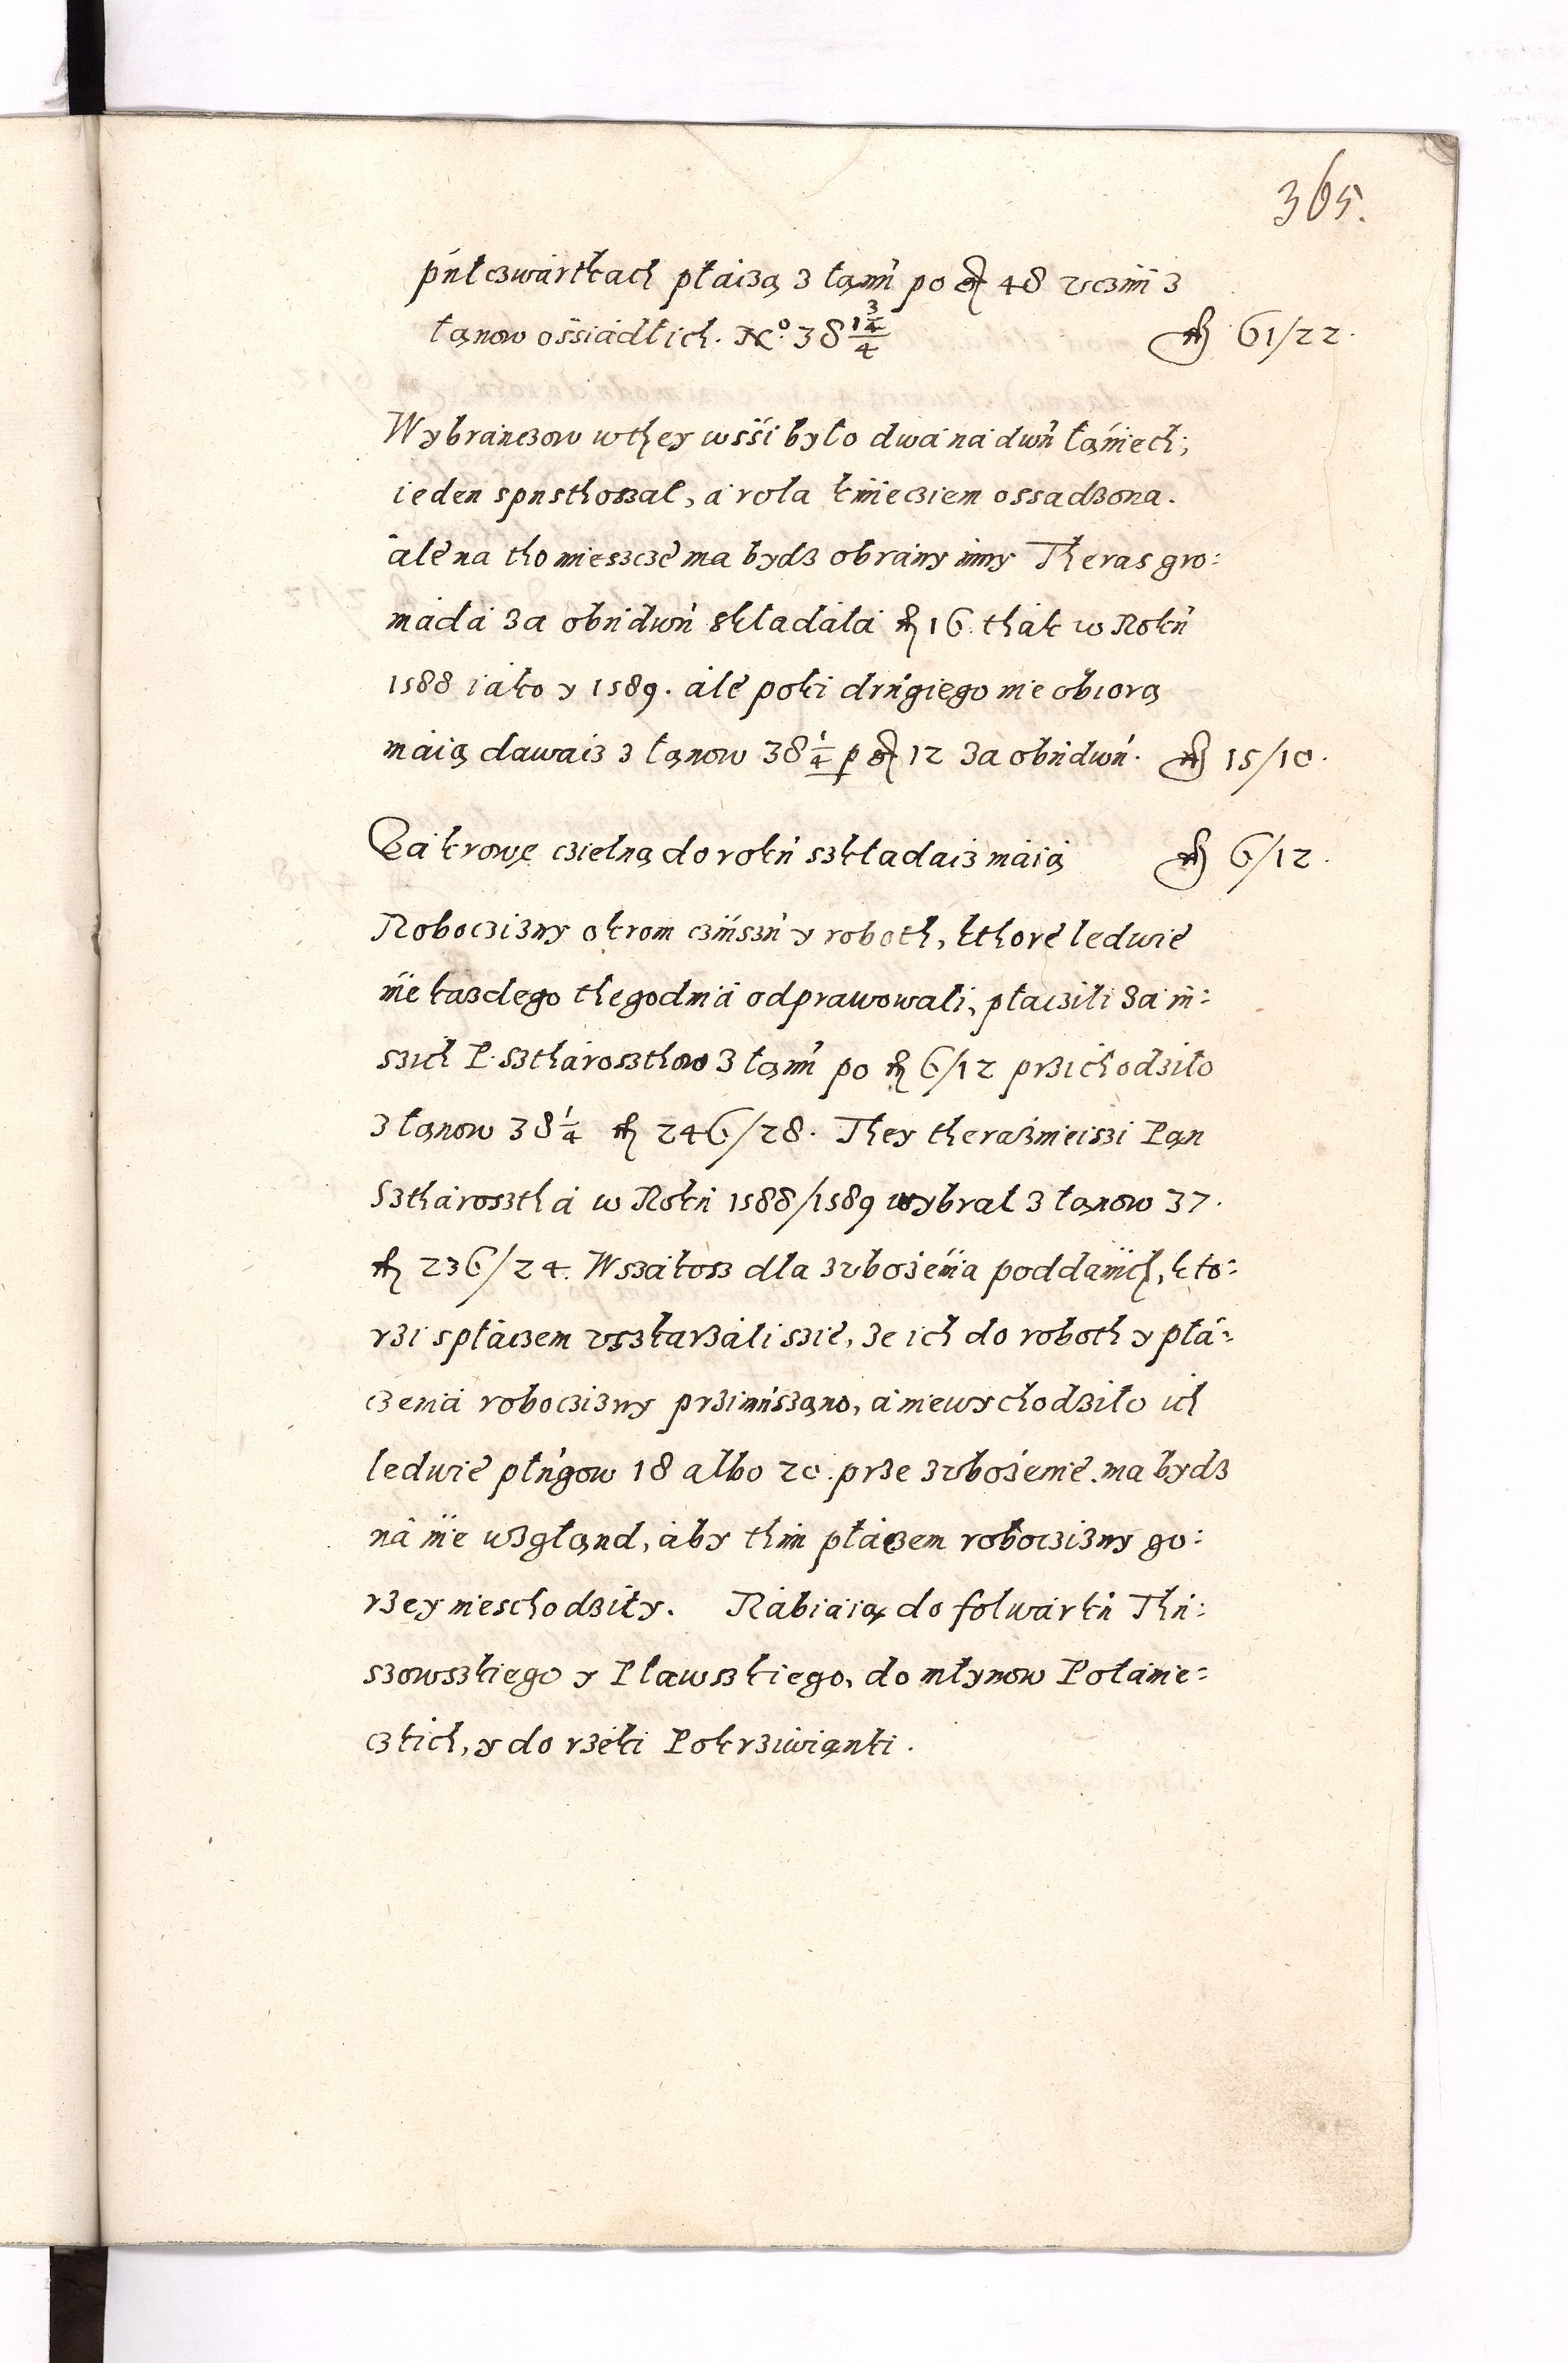 365.
pułczwártkách płáczą z łanu po gr 48 uczini z
łanow ossiádłich. No. 38 1¾/4 fl 61/22.
Wybránczow wthey wśśi było dwá ná dwu łąniech;
ieden spusthoszał, á rola kmieciem ossadzona.
ále na tho miescze ma bydz obrány inny Theras gro:
mádá za obudwu składáłá fl 16. thák w Roku
1588 iáko y 1589. ále poki drugiego nie obiorą
máią dawaiz z łanow 38 ¼ p gr 12 za obudwu. fl 15/10.
Zá krowę czielną do roku szkładaiz máią fl 6/12.
Robocizny okrom czinszu y roboth, kthore ledwie
nie kazdego thegodniá odprawowali, płaczili zá in:
szich P. Sztharosthow z łanu po fl 6/12 przichodziło
z łanow 38 ¼ fl 246/28. They therazniejszi Pan
Sztharoszthá w Roku 1588/1589 wybrał z łanow 37.
fl 236/24. Wszákosz dla zubożenia poddanich, kto:
rzi spłáczem uszkarzáli szie, ze ich do roboth y płá:
czeniá robocizny przimuszano, á niewychodziło ich
ledwie pługow 18 albo 20. prze zubożenie. ma bydz
ná nie wzgland, áby thim płáczem robocizny go:
rzey nieschodziły. Rábiáią do folwárku Thu:
szowszkiego y Pławszkiego, do młynow Połánie:
czkich, y do rzéki Pokrziwianki.